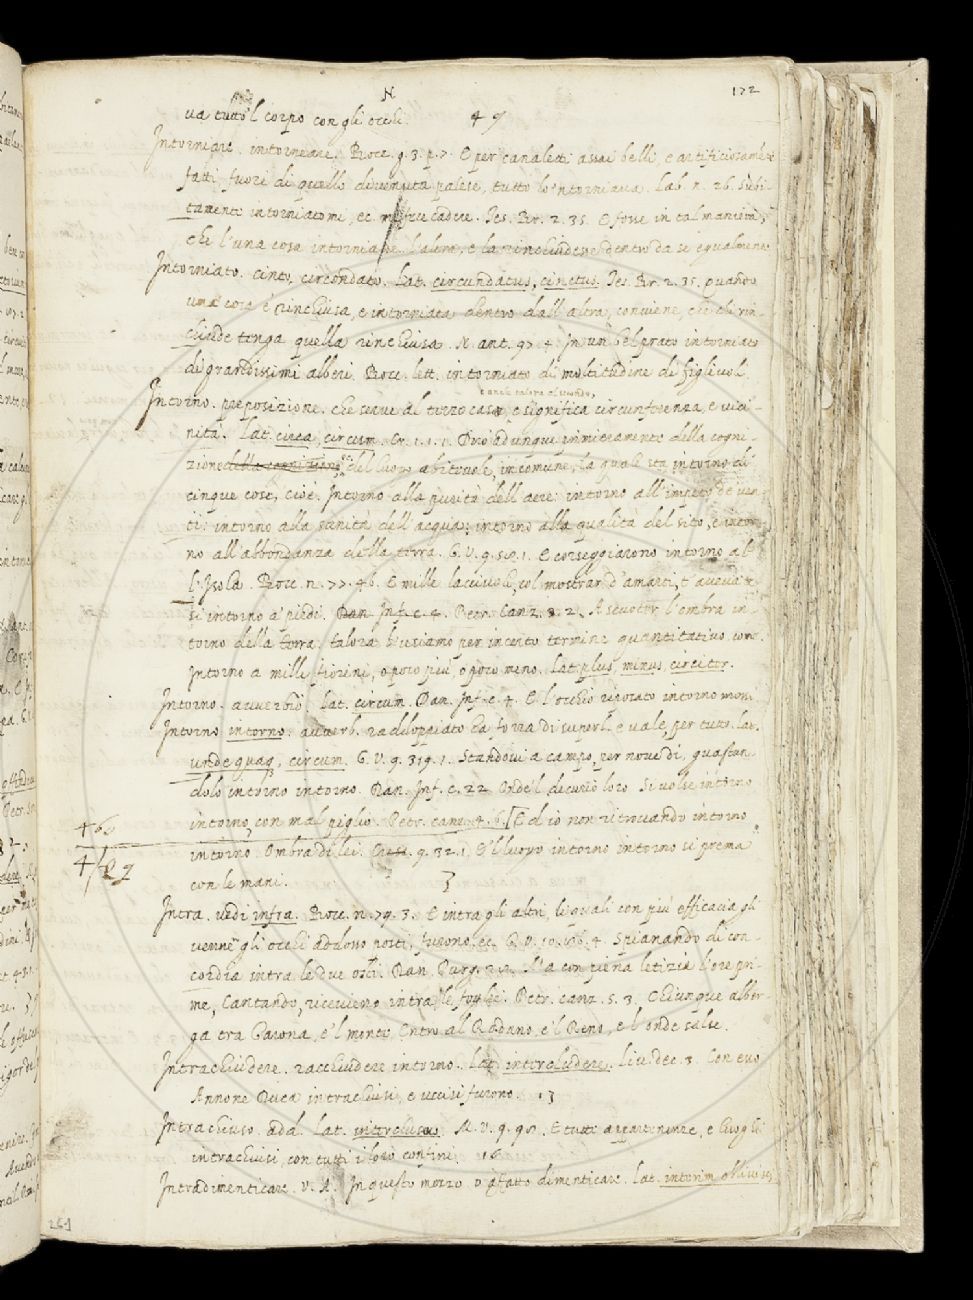 N
172
ua tutto'l corpo con gli occhi. 49
Intorniare. intorneare. Bocc. g. 3. p. 7. E per canaletti assai belli, e artificiosamente
fatti, fuori di quello divenuta palese, tutto lo'ntorniaua. Lab. n. 26. Subi-
tamente intorniatomi, ec. mi fece cadere. Tes. Br. 2. 35. E fosse in tal maniera,
che l'una cosa intorniasse l'altra, e la rinchiudesse dentro da se egualmente
Intorniato. cinto, circondato. Lat. circundatus, cinctus. Tes. Br. 2. 35. quando
una cosa è rinchiusa, e intorniata dentro dall'altra, conviene, che chi rin-
chiude tenga quella rinchiusa. N. ant. 97. 4. In un bel prato intorniato
di grandissimi alberi. Bocc. lett. intorniato di moltitudine di figliuoli.
e anche talora al secondo,
Intorno. preposizione. che serue al terzo caso, e significa circunferenza, e vici-
nità. Lat. circa, circum. Cr. 1. 1. 1. Dirò adunque primieramente della cogni-
zione della cognizione del luogo abitevole, in comune, la quale sta intorno di
cinque cose, cioè. Intorno alla purità dell'aere: intorno all'impeto de' ven-
ti: intorno alla sanità dell'acqua: intorno alla qualità del sito, e intor-
no all'abbondanza della terra. G. V. 9. E corseggiarono intorno al-
l'Isola. Bocc. n. 77. 46. E mille lacciuoli, col mostrar d'amarti, t'aveva te-
si intorno a' piedi. Dan. Inf. c. 4. Petr. Canz. 8. 2. A scuoter l'ombra in-
torno della terra. talora l'usiamo per incerto termine quantitativo, come.
Intorno a mille fiorini, o poco più, o poco meno. Lat. plus, minus, circiter.
Intorno. avverbio. Lat. circum. Dan. Inf. c. 4. E l'occhio riposato intorno mossi
Intorno intorno. avverb. raddoppiato ha forza di superl. e vale, per tutto. Lat.
undequaq; circum. G. V. 9. 319. 1. Standovi a campo per nove dì, guastan-
dolo intorno intorno. Dan. Inf. c. 22. Onde'l decurio loro Si volse intorno
intorno, con mal piglio. Petr. canz. 4. 6. Ed io non ritrovando intorno
460
intorno Ombra di lei. g. 32. 1. E'l luogo intorno intorno si prema
4/49
con le mani. 3
Intra. vedi infra. Bocc. n. 79. 3. E intra gli altri, li quali con più efficacia gli
venner gli occhi addosso posti, furono, ec. G. V. 10. 4. Spianando di con-
cordia intra le due osti. Dan. Purg. Ma con piena letizia l'ore pri-
me, Cantando, ricevieno intra le foglie. Petr. canz. 5. 3. Chiunque alber-
ga tra Garona, e'l monte, Entro al Rodano, e'l Reno, e l'onde salse.
Intrachiudere. racchiudere intorno. Lat. intercludere. Liv. dec. 3. Con esso
Annone Duca intrachiusi, e uccisi furono. 13
Intrachiuso. add. Lat. interclusus. M. V. 9. 98. E tutte appartenenze, e luoghi
intrachiusi, con tutti i loro confini. 16
Intradimenticare. v. A. In questo mezzo o affatto dimenticare. Lat. interim oblivisci
261